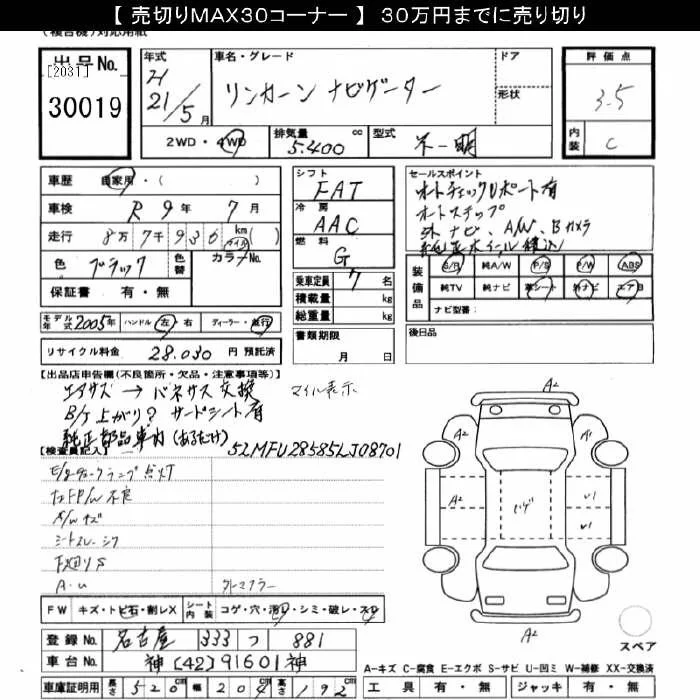 【 売切りMAX30コーナー 】 30万円までに売り切り
(複合機)対応用紙
出品No.
[2031]
30019
年式
H
21/5月
車名・グレード
リンカーン ナビゲーター
ドア
形状
評価点
3.5
内装
C
2WD・4WD
排気量
5.400
cc
型式
不一明
車歴 自家用・( )
車検 R 9年 7月
走行 8万7千936 km マイル ( )
色 ブラック
色替
カラーNo.
保証書 有・無
シフト
FAT
冷房
AAC
燃料
G
乗車定員 7 名
積載量 kg
総重量 kg
書類期限
月 日
セールスポイント
オートチェックリポート有
オートステップ
社外ナビ、A/W、Bカメラ
純正ホイール積込
装備品
S/R 純A/W P/S P/W ABS
純TV 純ナビ 革シート 外ナビ エアB
ナビ型番:
後日品
モデル年式 2005年 ハンドル 左・右 ディーラー・並行
リサイクル料金 28.030 円 預託済
【出品店申告欄(不良箇所・欠品・注意事項等)】
エアサス → バネサス 交換
マイル表示
B/T上がり? サードシート有
純正部品車内(あるだけ)
【検査員記入】
5LMFU28585LJ08701
E/gチェックランプ点灯
P/W不良
A/Wキズ
シートスレ・シワ
下廻りS
A・u
外マフラー
FW キズ・トビ石・割レX
シート内装 コゲ・穴・汚レ・シミ・破レ・スレ
登録No. 名古屋 333 つ 881
車台No. 神[42]91601神
車庫証明用 長さ 520cm 幅 204cm 高さ 192cm
A2
A2
A2
A2
A1
U1
U1
A2
A2
スペア
A-キズ C-腐食 E-エクボ S-サビ U-凹ミ W-補修 XX-交換済
工具 有・無 ジャッキ 有・無